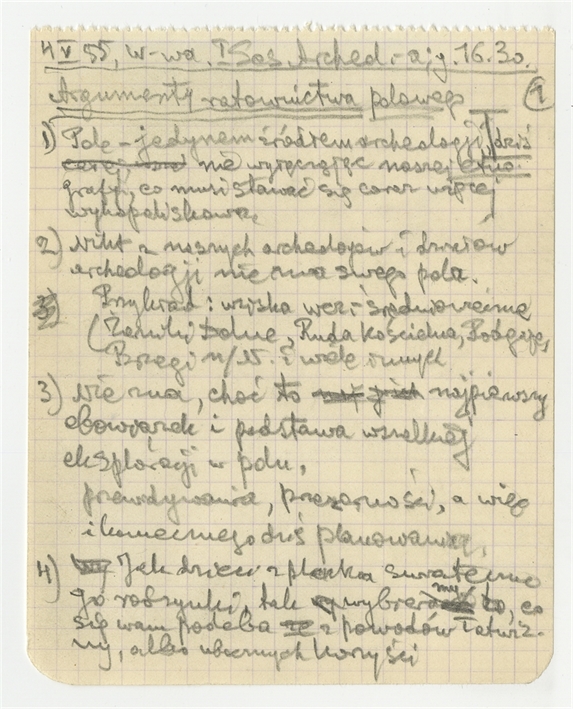 4 V 55, W-wa,
Argumenty ratownictwa polowego
1
1) Pole – jedynem źródłem archeologji, dziś
nie wyręczając naszej etno-
grafji, co musi stawać się coraz więcej
wykopaliskową,
2) Nikt z naszych archeologów i
archeologji nie zna swego pola.
Przykład: wczesnośredniowieczne
(Dolne, Ruda Kościelna, Podgaje,
Brzegi n/N. i wiele innych
3) Nie zna, choć to najpierwszy
obowiązek i podstawa wszelkiej
eksploracji w polu,
przewidywania, prezorności, a więc
i koniecznego dziś planowania,
4) Jak dzieci z placka
go rodzynki, tak wybieramy to, co
się wam podoba z powodów łatwiz-
ny, albo ubocznych korzyści